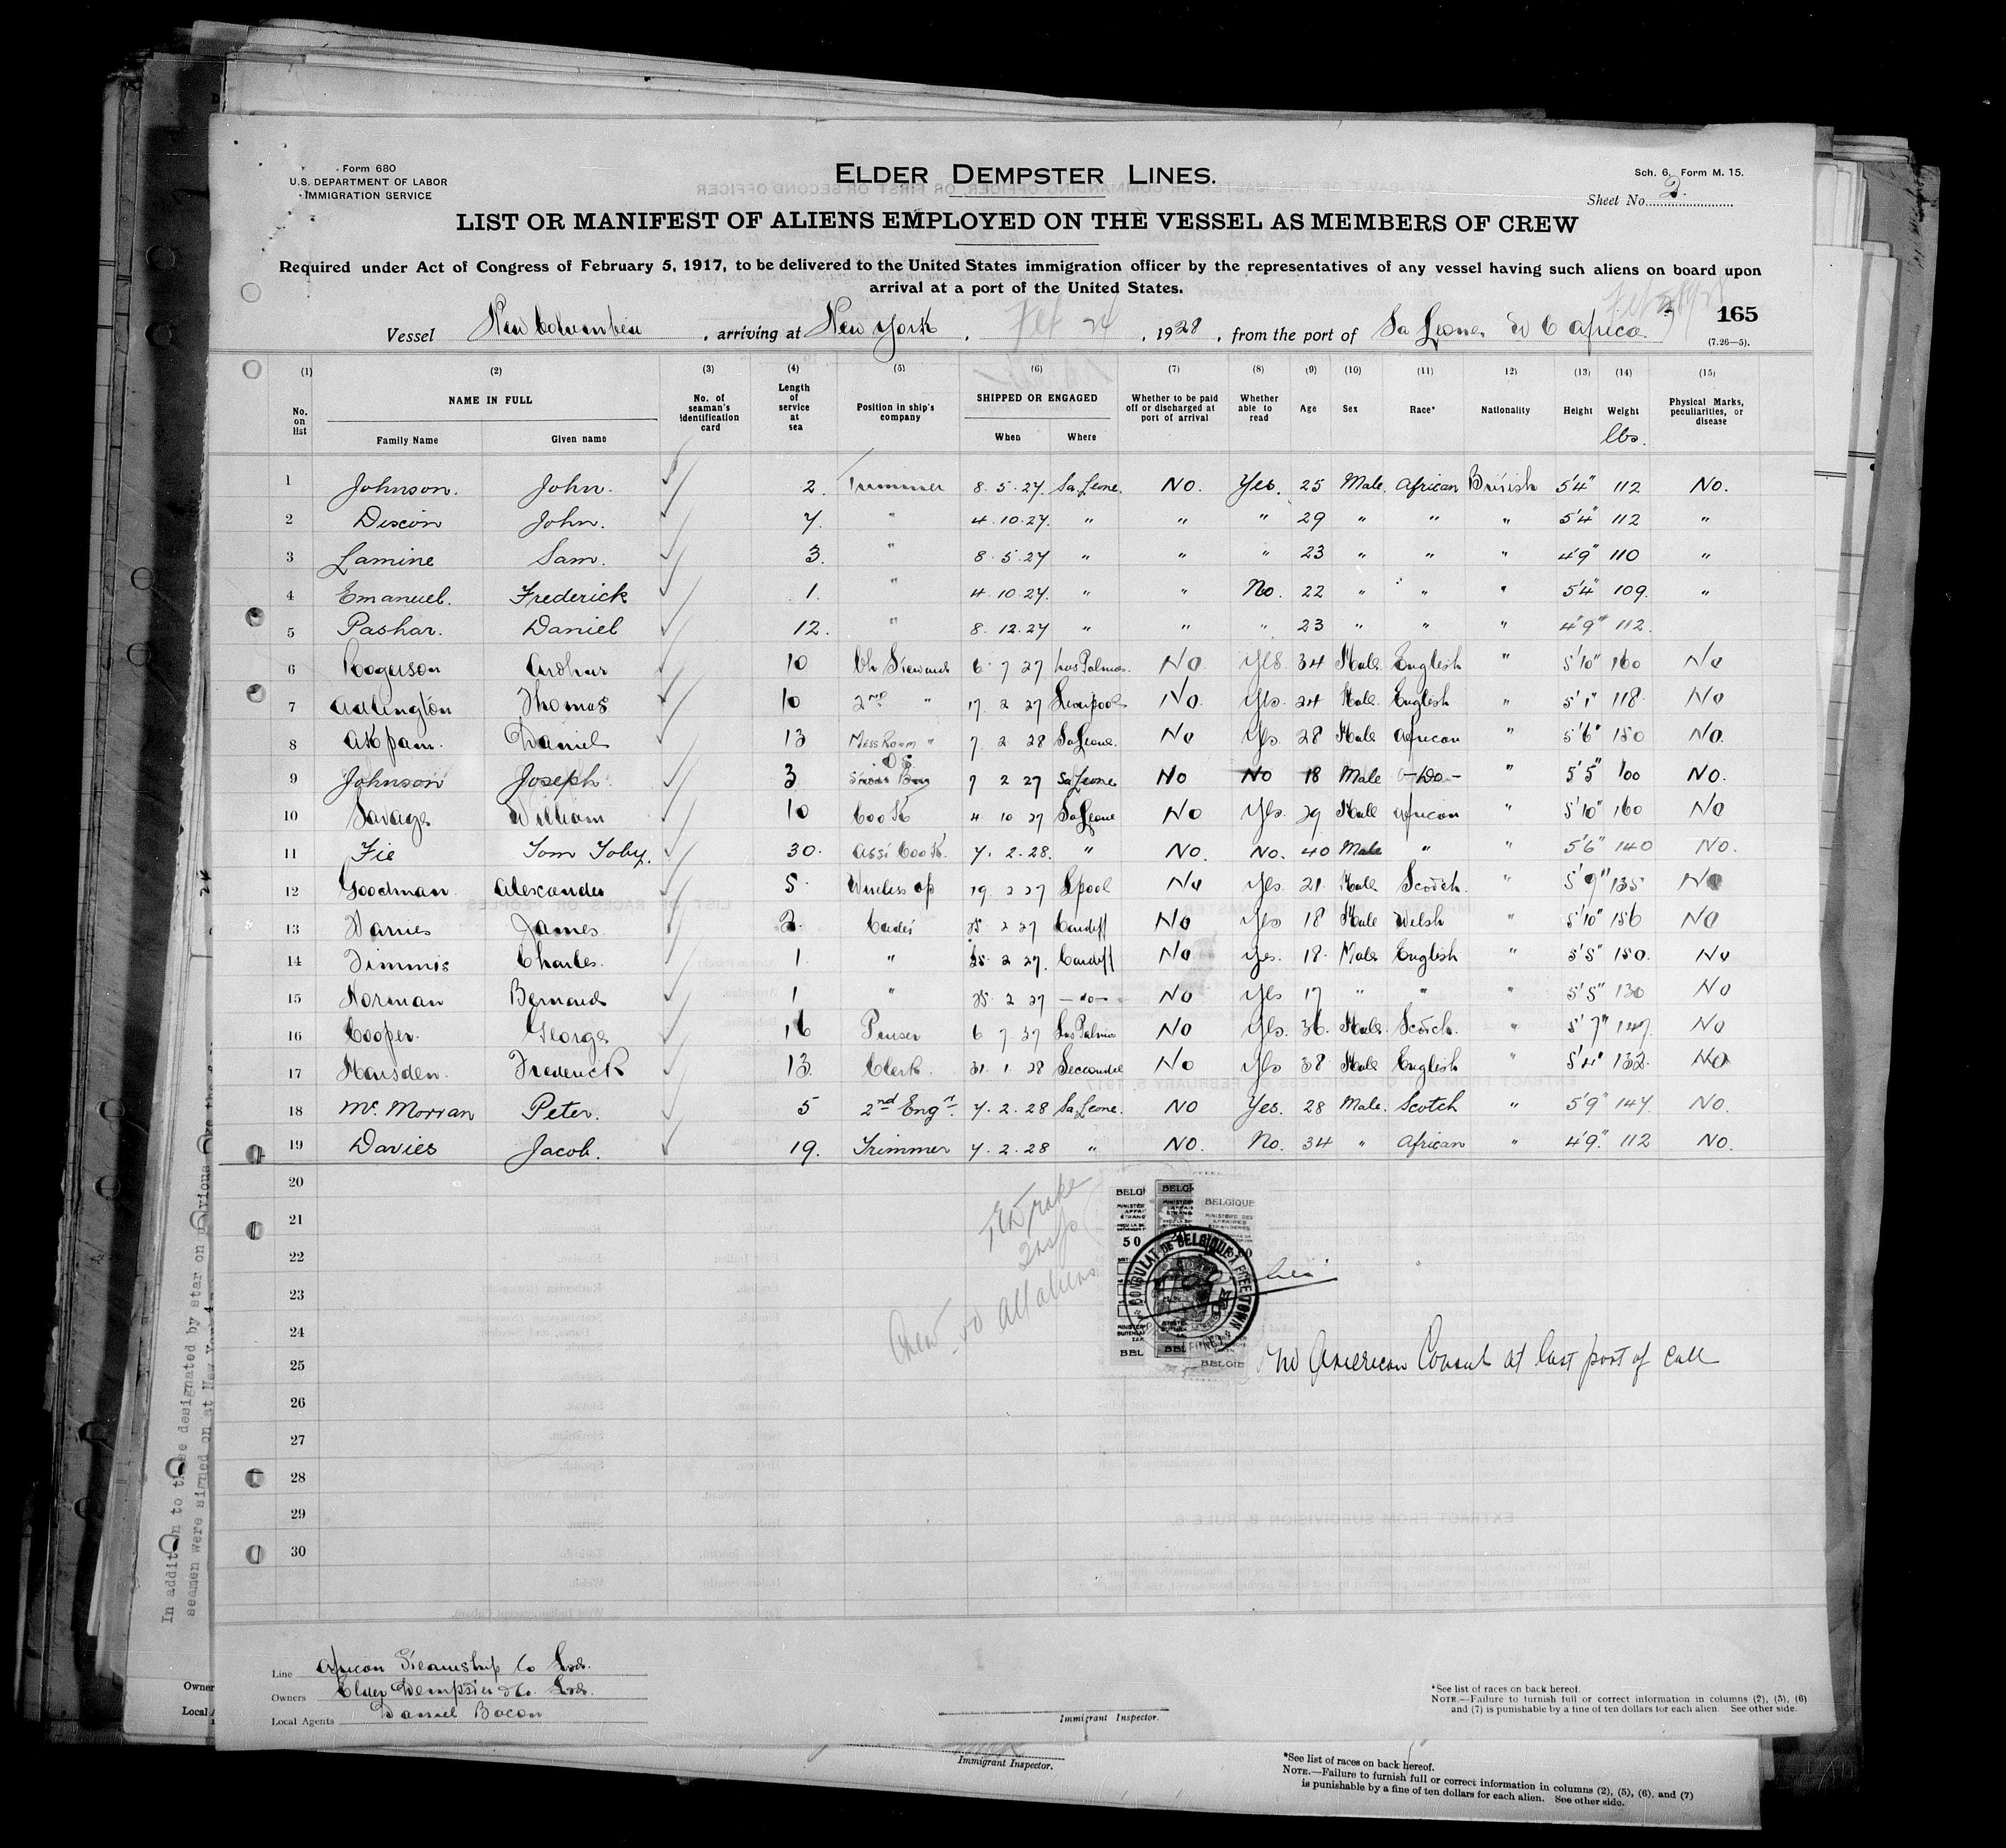 Form 680
U.S. DEPARTMENT OF LABOR
IMMIGRATION SERVICE
ELDER DEMPSTER LINES.
Sch. 6. Form M. 15.
Sheet No. 2.
LIST OR MANIFEST OF ALIENS EMPLOYED ON THE VESSEL AS MEMBERS OF CREW
Required under Act of Congress of February 5, 1917, to be delivered to the United States immigration officer by the representatives of any vessel having such aliens on board upon
arrival at a port of the United States.
Vessel New Columbia, arriving at New York, Feb 24, 1928, from the port of Sa Leone W C Africa
165
(7.26—5).
(1) (2) (3) (4) (5) (6) (7) (8) (9) (10) (11) 12) (13) (14) (15)
No. on list NAME IN FULL Family Name Given name No. of seaman's identification card Length of service at sea Position in ship's company SHIPPED OR ENGAGED When Where Whether to be paid off or discharged at port of arrival Whether able to read Age Sex Race* Nationality Height Weight lbs. Physical Marks, peculiarities, or disease
1 Johnson. John. 2. Trimmer 8.5.27. Sa Leone. NO. Yes. 25 Male. African British 5'4" 112 No.
2 Discon John. 7. " 4.10.27. " " " 29 " " " 5'4" 112 "
3 Lamine Sam. 3. " 8.5.27 " " " 23 " " " 4'9" 110 "
4 Emanuel. Frederick 1. " 4.10.27. " " No. 22 " " " 5'4" 109. "
5 Pashar. Daniel 12. " 8.12.27 " " " 23 " " " 4'9" 112.
6 Rogerson Arthur 10 Ch Steward 6 7 27 Las Palmas. No. Yes. 34 Male. English " 5'10" 160 No
7 Adlington Thomas 10 2nd " 17 2 27 Liverpool No. Yes. 24 Male. English " 5'1" 118 No
8 Akpam. Daniel 13 Mess Room " 7 2 28 Sa Leone. No Yes. 28 Male African " 5'6" 150 No.
9 Johnson Joseph 3 7 2 27 Sa Leone No No 18 Male —Do— " 5'5" 100 No.
10 Savage William 10 Cook 4 10 27 Sa Leone No Yes. 29 Male African " 5'10" 160 No
11 Fie Tom Toby. 30. Asst Cook. 7.2.28. " No. No. 40 Male " 5'6" 140 No.
12 Goodman Alexander 5 Wireless op 19 2 27 Lpool No Yes. 21 Male Scotch. " 5'9" 135 No
13 Davies James 2. Cadet 25 2 27 Cardiff No Yes 18 Male Welsh " 5'10" 156 No
14 Timmis Charles. 1. " 25 2 27. Cardiff No. Yes. 18. Male English " 5'5" 150. No
15 Norman Bernard 1 " 25 2 27 —do— No Yes 17 " " " 5'5" 130 No
16 Cooper. George 16 Purser 6 7 27 Las Palmas No Yes. 36. Male. Scotch. " 5'7" 147. No
17 Marsden. Frederick 13. Clerk. 31. 1. 28 Seccondee No Yes 38 Male English " 5'4" 132. No
18 Mc. Morran Peter. 5 2nd Engr. 7.2.28 Sa Leone. NO Yes. 28 Male. Scotch " 5'9" 147. No.
19 Davies Jacob. 19. Trimmer 7.2.28 " NO. No. 34 " African " 4'9." 112 No.
20
21
22
23
24
25
26
27
28
29
30
Crew 50 All aliens
BELGIQUE
MINISTÈRE DES AFFAIRES ÉTRANGÈRES
50
CONSULAT DE BELGIQUE FREETOWN
No American Consul at last port of call
Line African Steamship Co Ltd.
Owners Elder Dempster & Co. Ltd.
Local Agents Daniel Bacon
Immigrant Inspector.
*See list of races on back hereof.
NOTE.—Failure to furnish full or correct information in columns (2), (5), (6)
and (7) is punishable by a fine of ten dollars for each alien. See other side.
Owner
Local A
Immigrant Inspector.
*See list of races on back hereof.
NOTE.—Failure to furnish full or correct information in columns (2), (5), (6), and (7)
is punishable by a fine of ten dollars for each alien. See other side.